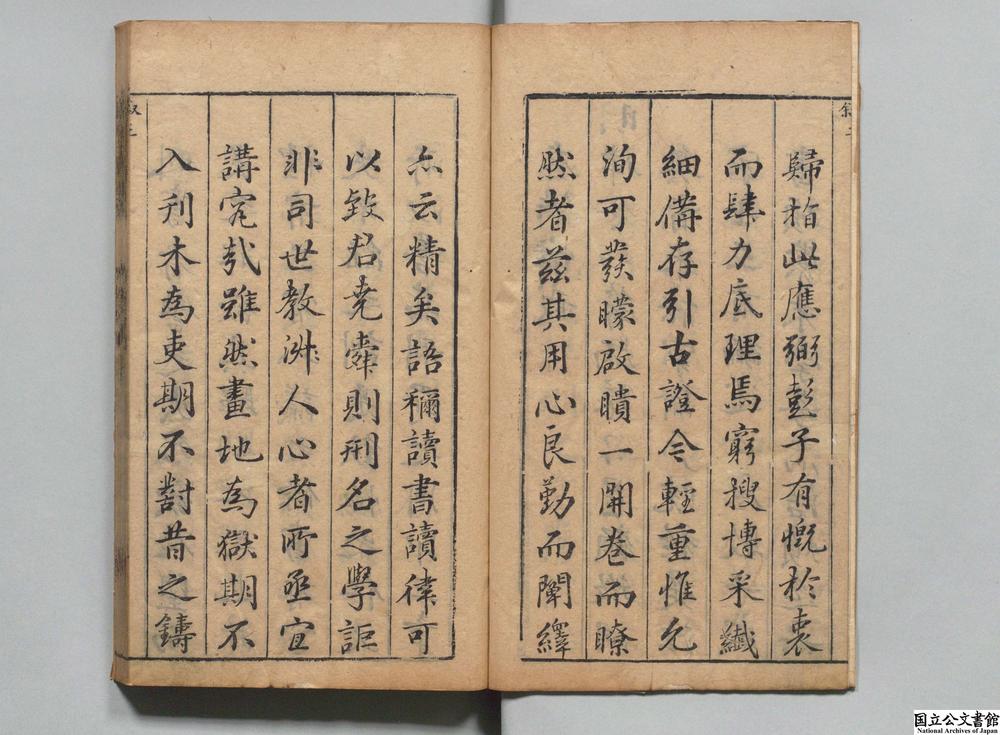 歸指此應弼彭子有慨於衷
而肆力底理焉窮搜博采纖
細備存引古證今輕重惟允
洵可發矇啟瞶一開卷而瞭
然者茲其用心良勤而闡繹
亦云精矣語稱讀書讀律可
以致君堯舜則刑名之學詎
非司世教淑人心者所亟宜
講究哉雖然畫地為獄期不
入刊木為吏期不對昔之鑄
国立公文書館
National Archives of Japan